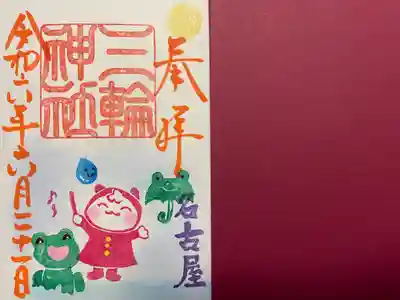 奉拝
名古屋
三輪
神社
令和六年六月二十一日